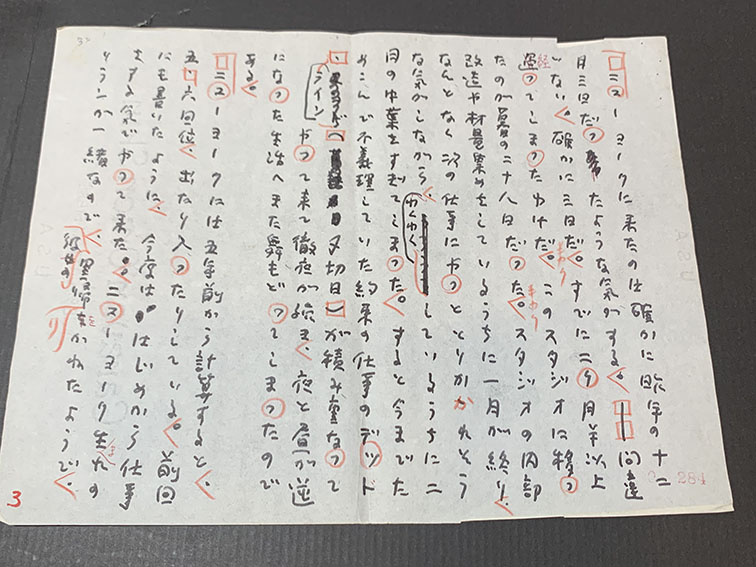 ニューヨークに来たのは確かに昨年の十二
月三日だったような気がする。――間違
いない。確かに三日だ。すでに二ヶ月半以上
経ってしまったわけだ。このスタジオに移っ
たのが暮の二十八日だった。スタジオの内部
改造や材料集めをしているうちに一月が終り、
なんとなく次の仕事にやっととりかかれそう
な気がしながら、
ゆくゆくしているうちに二
月の中葉をすぎてしまった。すると今までた
めこんで不義理していた約束の仕事のデッド
・ライン（〆切日）が積み重なって
やって来て徹夜が続き、夜と昼が逆
になった生活へまた舞もどってしまったので
ある。
ニューヨークには五年前から計算すると、
五、六回位、出たり入ったりしている。前回
にも書いたように、今度ははじめから仕事
をする気でやって来た。ニューヨーク生れの
うランが一緒なので、
里帰りをかねたようで、
3
284